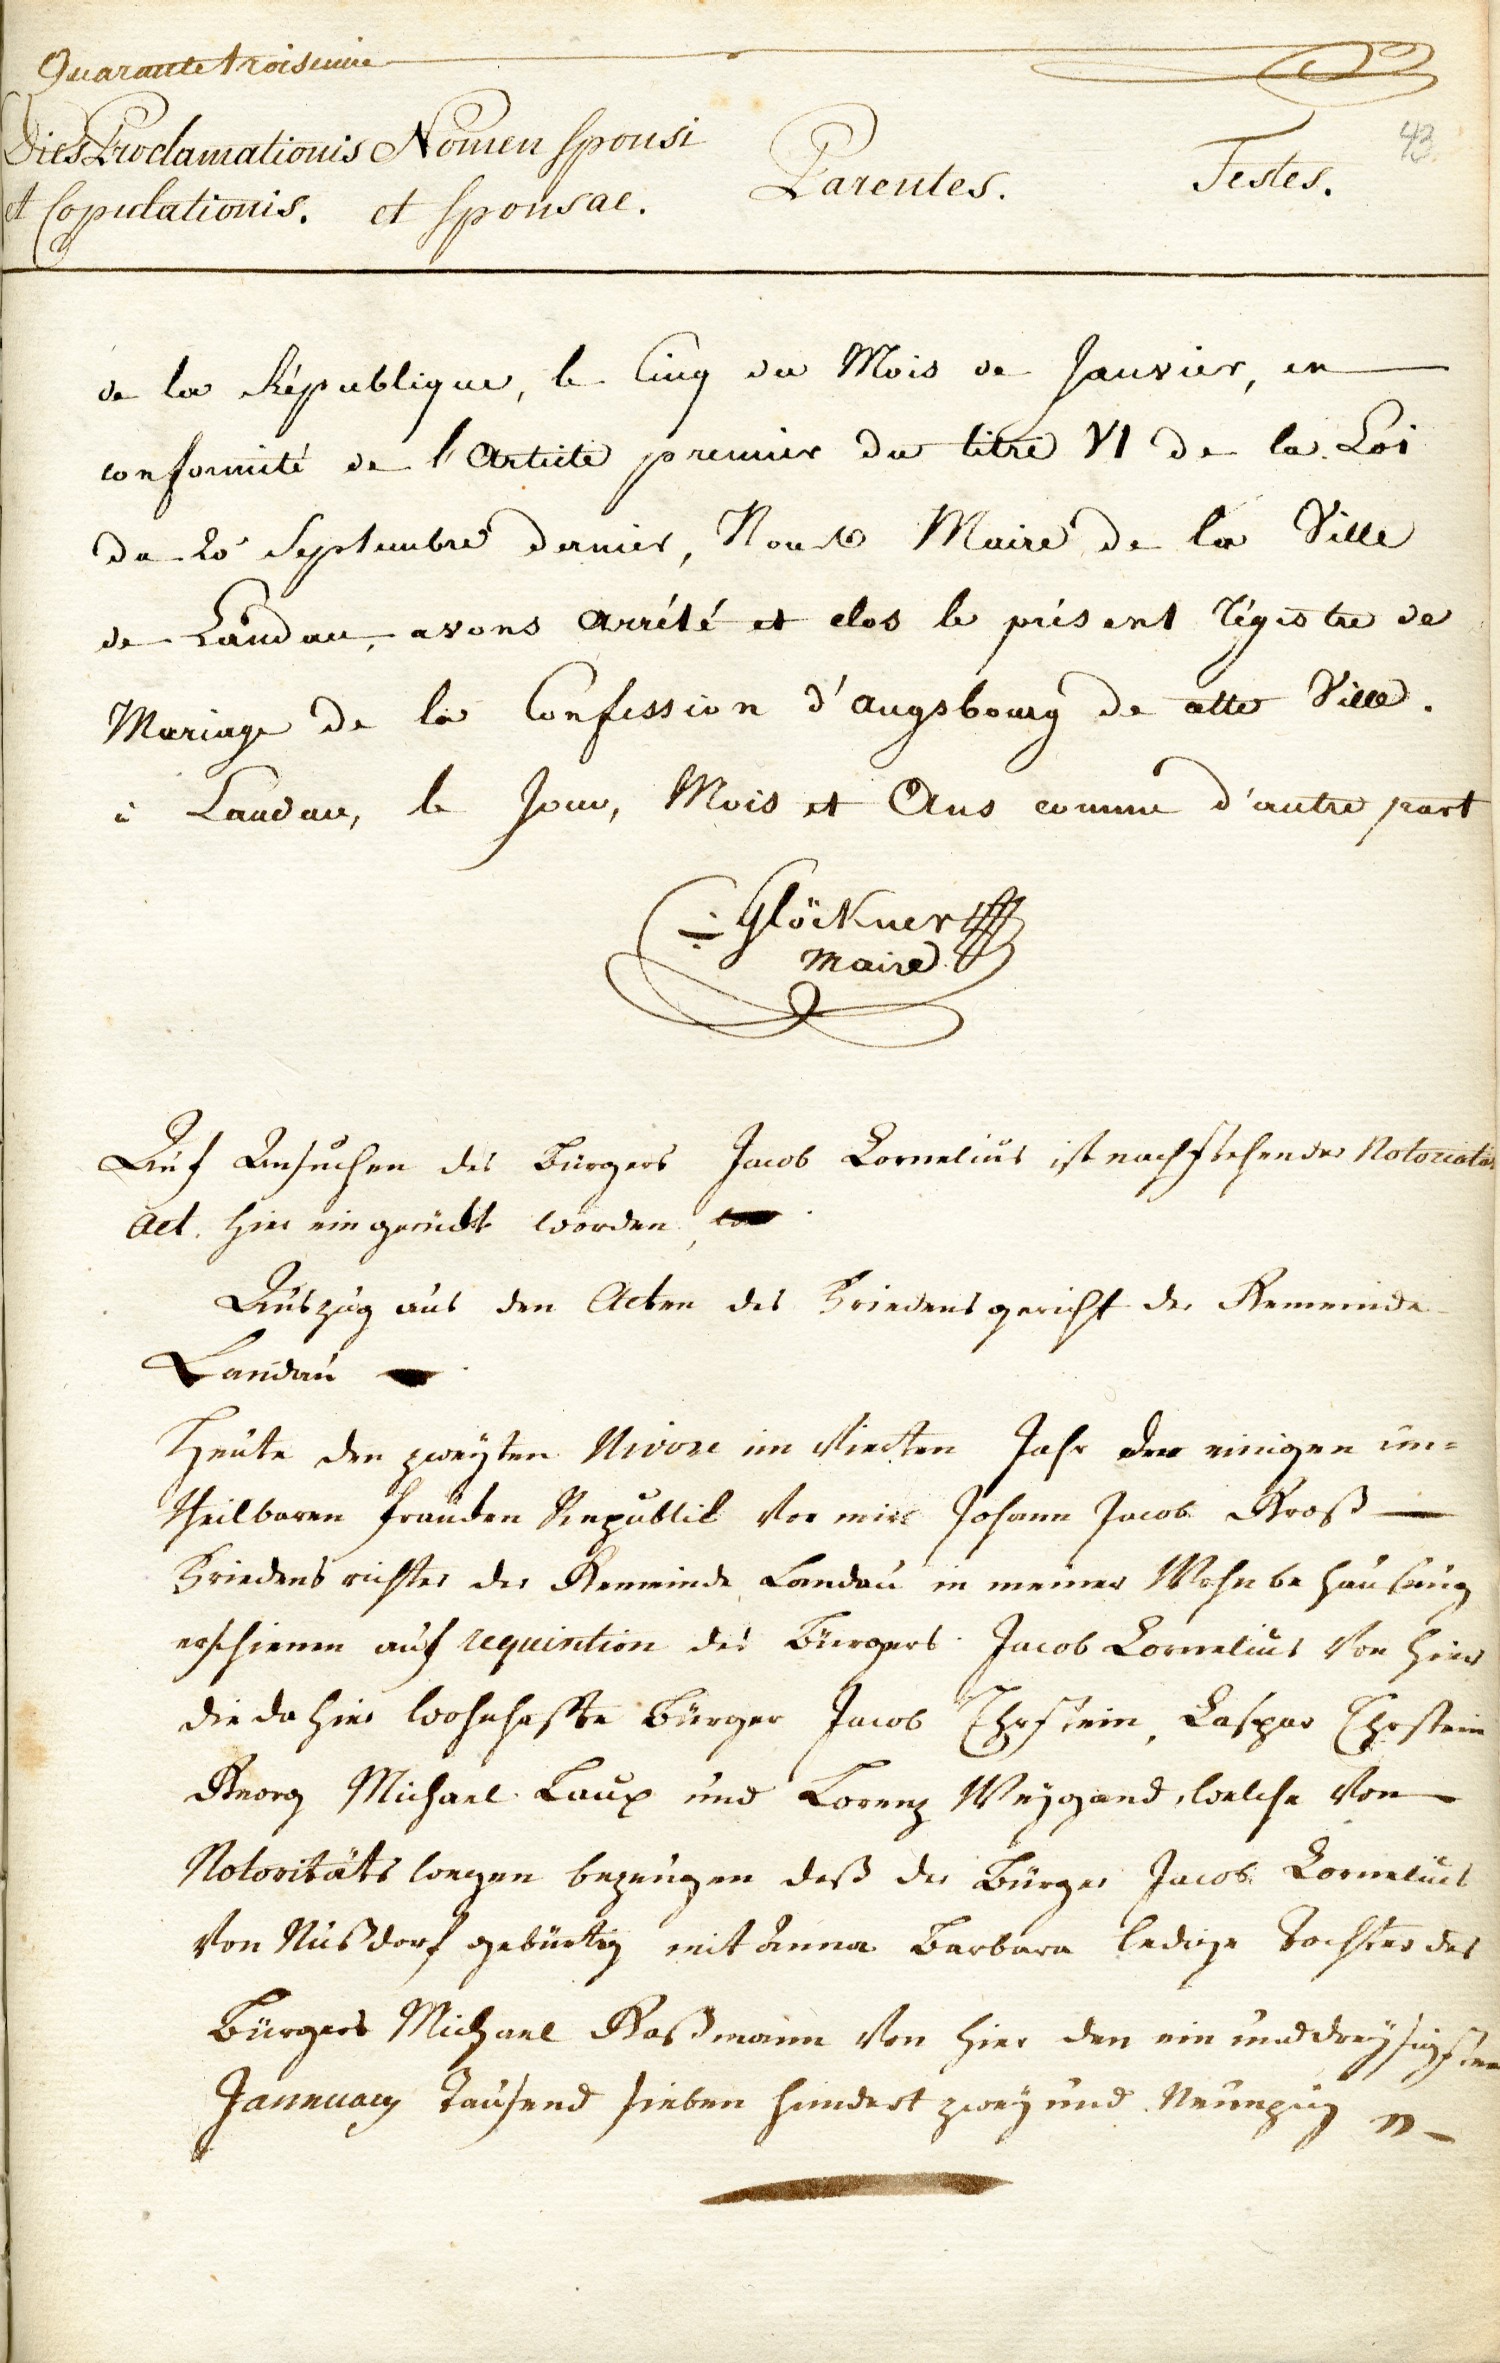 Quarante troisieme
43.
Dies Proclamationis Nomen Sponsi
et Copulationis. et Sponsae. Parentes. Testes.
de la République, le Cinq du Mois de Janvier, en
conformité de l'Article premier du titre VI de la Loi
du 20 Septembre dernier, Nous Maire de la Ville
de Landau, avons arrêté et clos le présent Régistre de
Mariage de la Confession d'Augsbourg de cette Ville.
à Landau, le Jour, Mois et Ans comme d'autre part
Glöckner
Maire
Auf Ansuchen des Bürgers Jacob Cornelius ist nachstehender Notoriotäts
Act. hier eingerückt worden,
Auszug aus den Acten des Friedensgericht der Gemeinde
Landau
Heute den zweyten Nivose im vierten Jahr der einigen un=
theilbaren Republik vor mir Johann Jacob Groß
Friedensrichter der Gemeinde Landau in meiner Wohnbehausung
erschienen auf requisition des Bürgers Jacob Cornelius von hier
die dahier wohnhafte Bürger Jacob Ehrstein, Caspar Ehrstein
Georg Michael Laux und Lorenz Weygand, welche von
Notoritäts wegen bezeugen daß der Bürger Jacob Cornelius
von Nußdorf gebürtig mit Anna Barbara ledige Tochter des
Bürgers Michael Roßmann von hier den ein und dreysigsten
Jannuary Tausend sieben hundert zwey und Neunzig